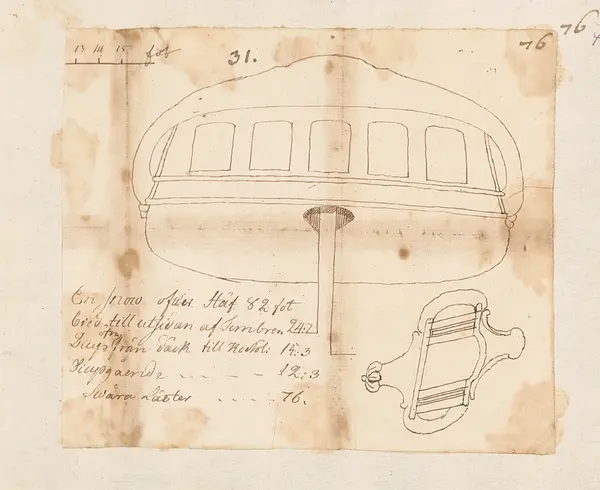 13 14 15 fot
31.
76
76
En snow öfver Häf 82 fot
bred till utsidan af Timbren 24:2
Diup från däck till Kohol: 14:3
Diupgaende - - - - - 12:3
Swåra Läster - - - - - 76.